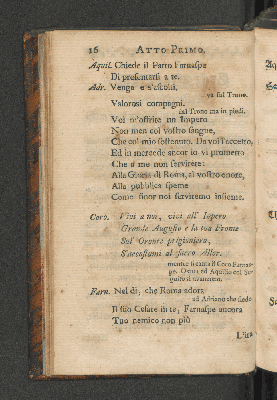 16 ATTO PRIMO.
Aquil. Chiede il Parto Farnaspe
Di presentarsi a te.
Adr. Venga e s'ascolti.
va sul Trono.
Valorosi compagni,
sul Trono ma in piedi.
Voi m'offrite un Impero
Non men col vostro sangue,
Che col mio sostenuto. Da voi l'accetto,
Ed in mercede ancor io vi prometto
Che a me non servirete:
Alla Gloria di Roma, al vostro onore,
Alla pubblica speme
Come finor noi serviremo insieme.
Coro. Vivi a noi, vivi all' Impero
Grande Augusto e la tua Fronte
Sul Oronte prigioniero,
S'accostumi al sacro Allor.
mentre si canta il Coro Farnas-
pe, Osroa ed Aquilio col Se-
Farn. Nel dì, che Roma adora
ad Adriano che siede
Il suo Cesare in te, Farnaspe ancora
Tuo nemico non più